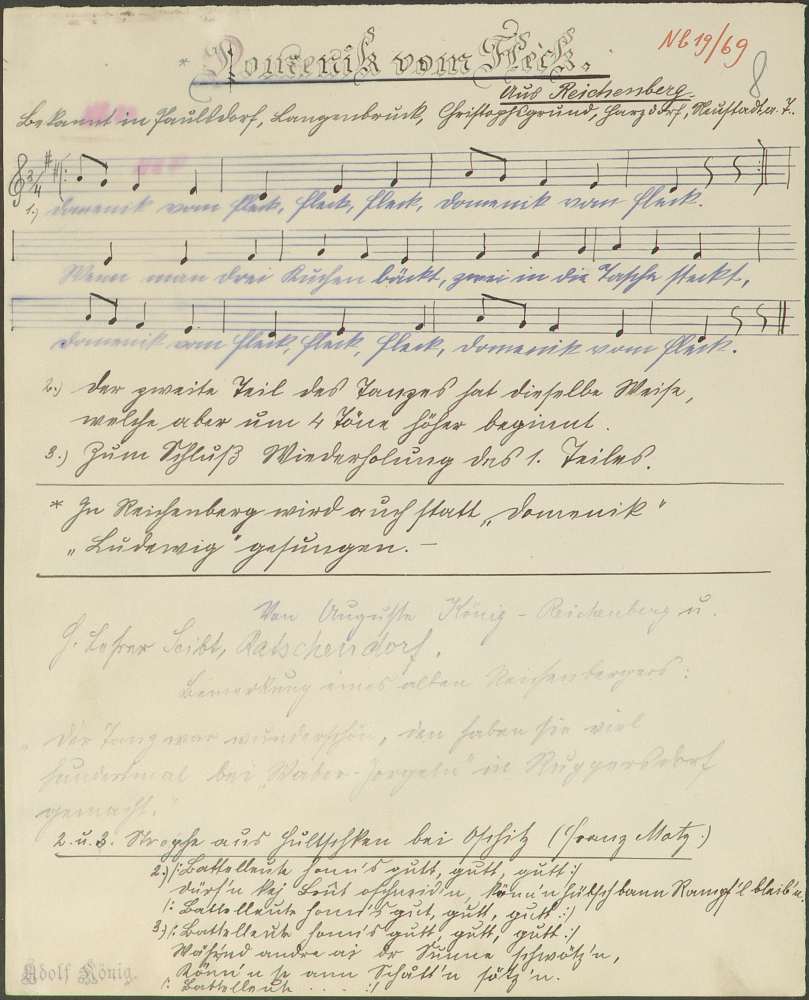 * Domenik vom Fleck.
Nb 19/69
8
Aus Reichenberg.
Bekannt in Paulsdorf, Langenbruck, Christophsgrund, Harzdorf, Neustadt a. T..
3/4
1.) Domenik vom Fleck, Fleck, Fleck, Domenik vom Fleck.
Wenn man drei Kuchen bäckt, zwei in die Tasche steckt,
Domenik vom Fleck, Fleck, Fleck, Domenik vom Fleck.
2.) Der zweite Teil des Tanzes hat dieselbe Weise,
welche aber um 4 Töne höher beginnt.
3.) Zum Schluß Wiederholung des 1. Teiles.
* In Reichenberg wird auch statt „Domenik"
„Ludewig" gesungen. –
Von Auguste König - Reichenberg u.
H. Lehrer Seibt, Ratschendorf.
Bemerkung eines alten Reichenbergers:
„Der Tanz war wunderschön, den haben sie viel
hundertmal bei „Waber-Jorgeln" in Ruppersdorf
gemacht."
2. u. 3. Strophe aus Hultschken bei Oschitz (Franz Matz.)
2.) /: Battelleute honn's gutt, gutt, gutt :/
Dürf'n kej Brut oschneid'n, könn'n hübsch bann Rampf'l bleib'n.
/: Battelleute honn's gut, gutt, gutt :/
3.) /: Battelleute honn's gutt, gutt, gutt :/
Währnd andre ai dr Sunne schwötz'n,
Könn'n se ann Schatt'n sötz'n.
/: Battelleute . . . . :/
Adolf König.